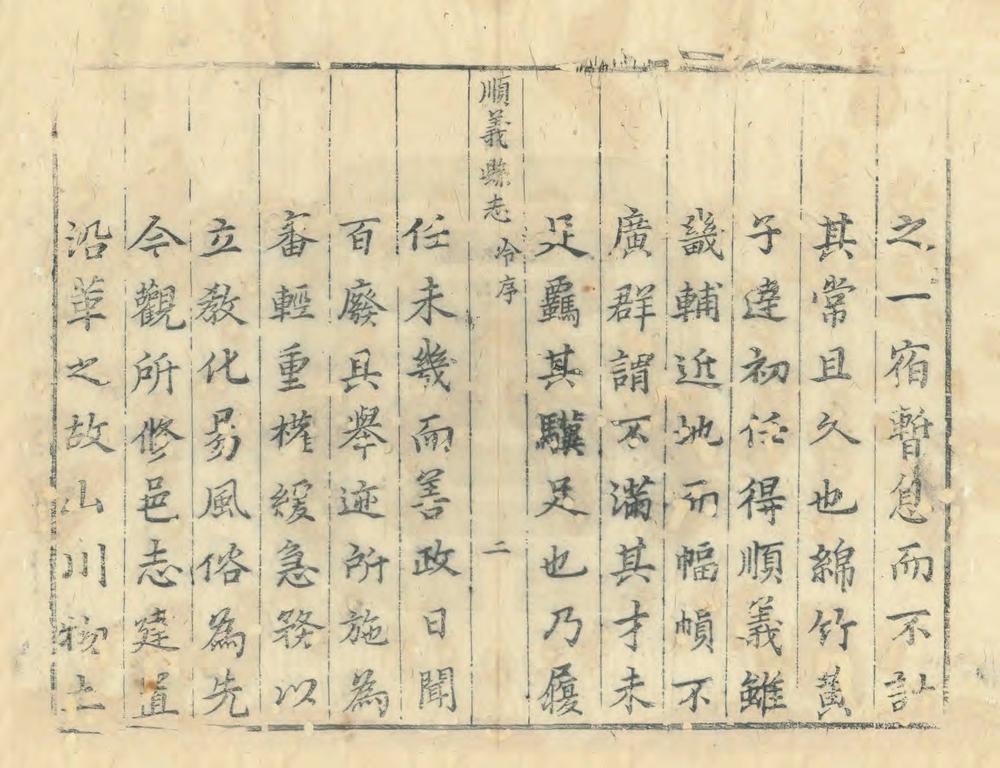 之一宿暫息而不計
其常且久也綿竹黃
子達初任得順義雖
畿輔近地而幅幀不
廣群謂不滿其才未
足羈其驥足也乃履
順義縣志 冷序 二
任未幾而善政日聞
百廢具舉迹所施為
審輕重權緩急務以
立教化易風俗為先
今觀所修邑志建置
沿革之故山川物土